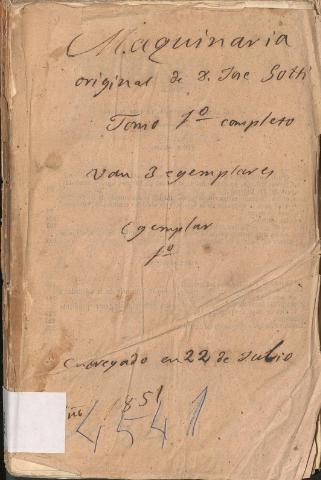 Maquinaria
original de D. Jose Gotti
Tomo 1º completo
van 3 egemplares
Egemplar
1º
entregado en 22 de Julio
1851
4541